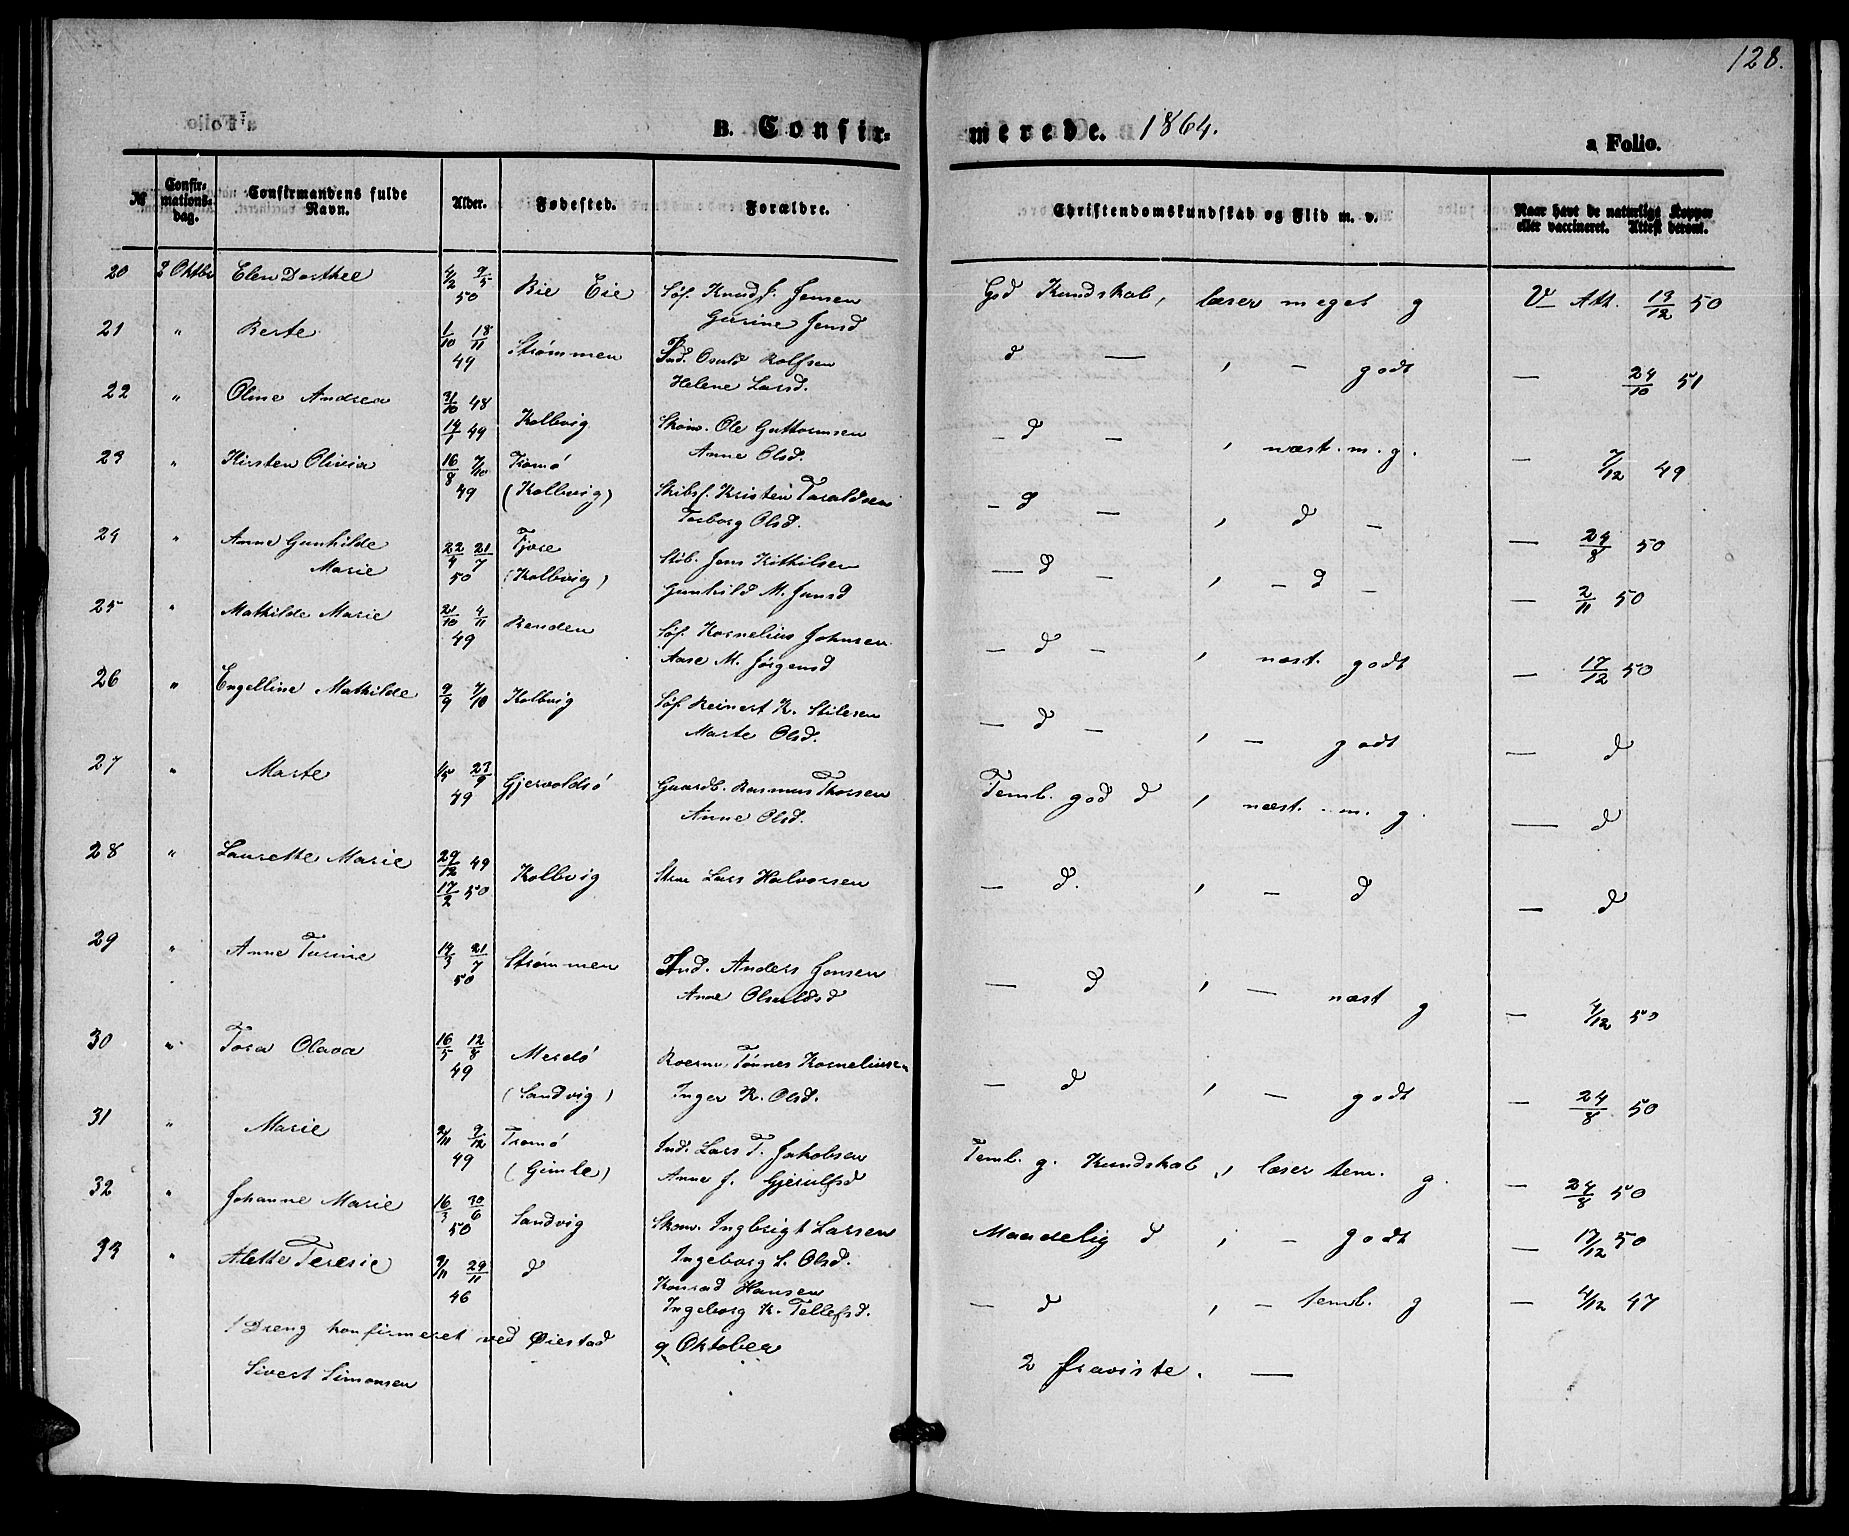 128.
B. Confir-
merede. 1864.
a Folio.
№ Confir-mations-dag. Confirmandens fulde Navn. Alder. Fødested. Forældre. Christendomskundskab og Flid m. v. Naar havt de naturlige Kopper eller vaccineret. Attest derom.
20 2 Oktbr Elen Dorthee 4/2 9/5 50 Bie Eie Søf. Knud J. Jensen
Gurine Jensd
God Kundskab, læser meget g V Att. 13/12 50
21 " Berte 1/10 18/11 49 Strømmen Ind. Osuld Rolfsen
Helene Larsd.
d — , — godt — 24/10 51
22 " Oline Andrea 31/10 48 14/1 49 Kolbvig Skom. Ole Guttormsen
Anne Olsd.
— d — , næst. m. g. — 7/12 49
23 " Kirsten Olivia 16/8 7/10 49 Tromø (Kolbvig) Skibsf. Kristen Taraldsen
Torborg Olsd.
— d — , d — — 24/8 50
24 " Anne Gunhilde Marie 22/4 21/7 50 Tjore (Kolbvig) Skib. Jens Kittilsen
Gunhild M. Jensd
— d — , — d — — 2/11 50
25 " Mathilde Marie 21/10 4/11 49 Revden Søf. Kornelius Johnsen
Anne M. Jørgensd
— d — , næst. godt — 17/12 50
26 " Engelline Mathilde 9/9 7/10 Kolbvig Søf. Reinert K. Stilesen
Marte Olsd.
— d — , — godt — d
27 " Marte 1/5 23/9 49 Gjervoldsø Gaardb. Rasmus Thorsen
Anne Olsd.
Teml. god d , næst. m. g. — d
28 " Laurette Marie 29/12 49 17/2 50 Kolbvig Lars Halvorsen
— d. , — d — d
29 " Anne Turine 14/3 21/7 50 Strømmen Ind. Anders Jonsen
Anne Osuldsd
— d , — næst g — 4/12 50
30 " Tora Olava 16/5 12/8 49 Merdø (Sandvig) Tønnes Korneliusen
Inger K. Olsd.
— d , — godt — 24/8 50
31 " Marie 2/11 9/12 49 Tromø (Gimle) Ind. Lars T. Jakobsen
Anne J. Gjerulfsd
Teml. g. Kundskab, læser tem. g. — 24/8 50
32 " Johanne Marie 16/3 30/6 50 Sandvig Skom. Ingbrigt Larsen
Ingeborg L. Olsd.
Maadelig d , — godt — 17/12 50
33 " Alette Teresie 9/11 29/11 46 d Konrad Hansen
Ingeborg K. Tellefsd.
— d , — teml. g — 4/12 47
1 Dreng konfirmeret ved Øiestad 9 Oktober
Sivert Simonsen
2 fraviste. —